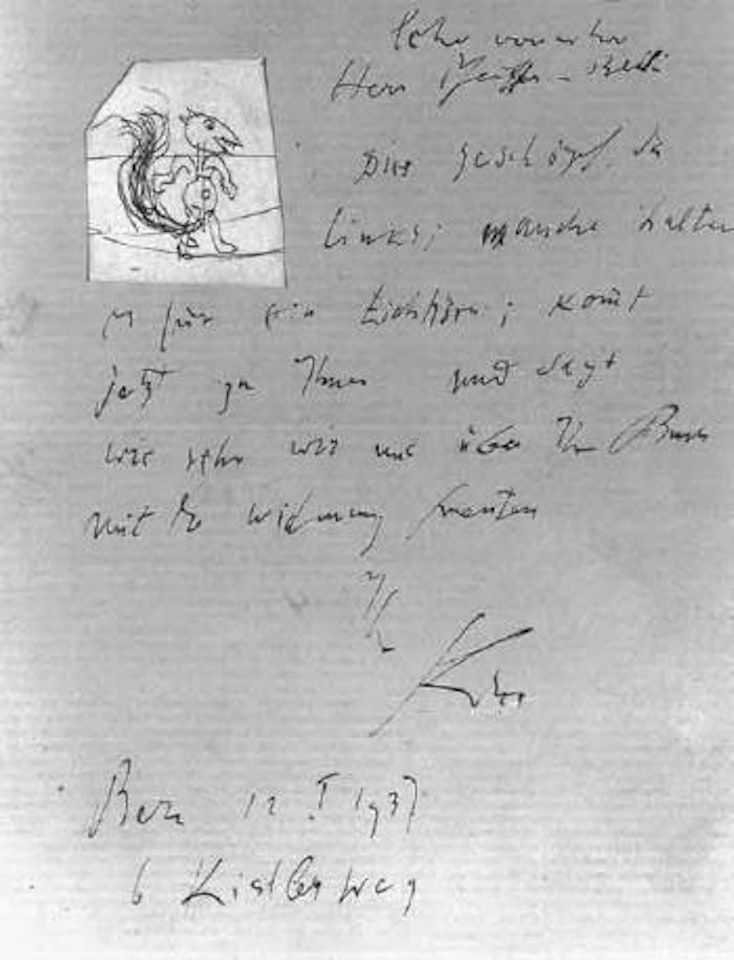 Sehr verehrter
Herr Pfeiffer-Belli
Dies Geschöpf da
links; manche halten
es für ein Eichhörn; komt
jetzt zu Ihnen und sagt
wie sehr wir uns über Ihr Buch
mit der Widmung freuten
Ihr
Klee
Bern 12 I 1937
6 Kistlerweg